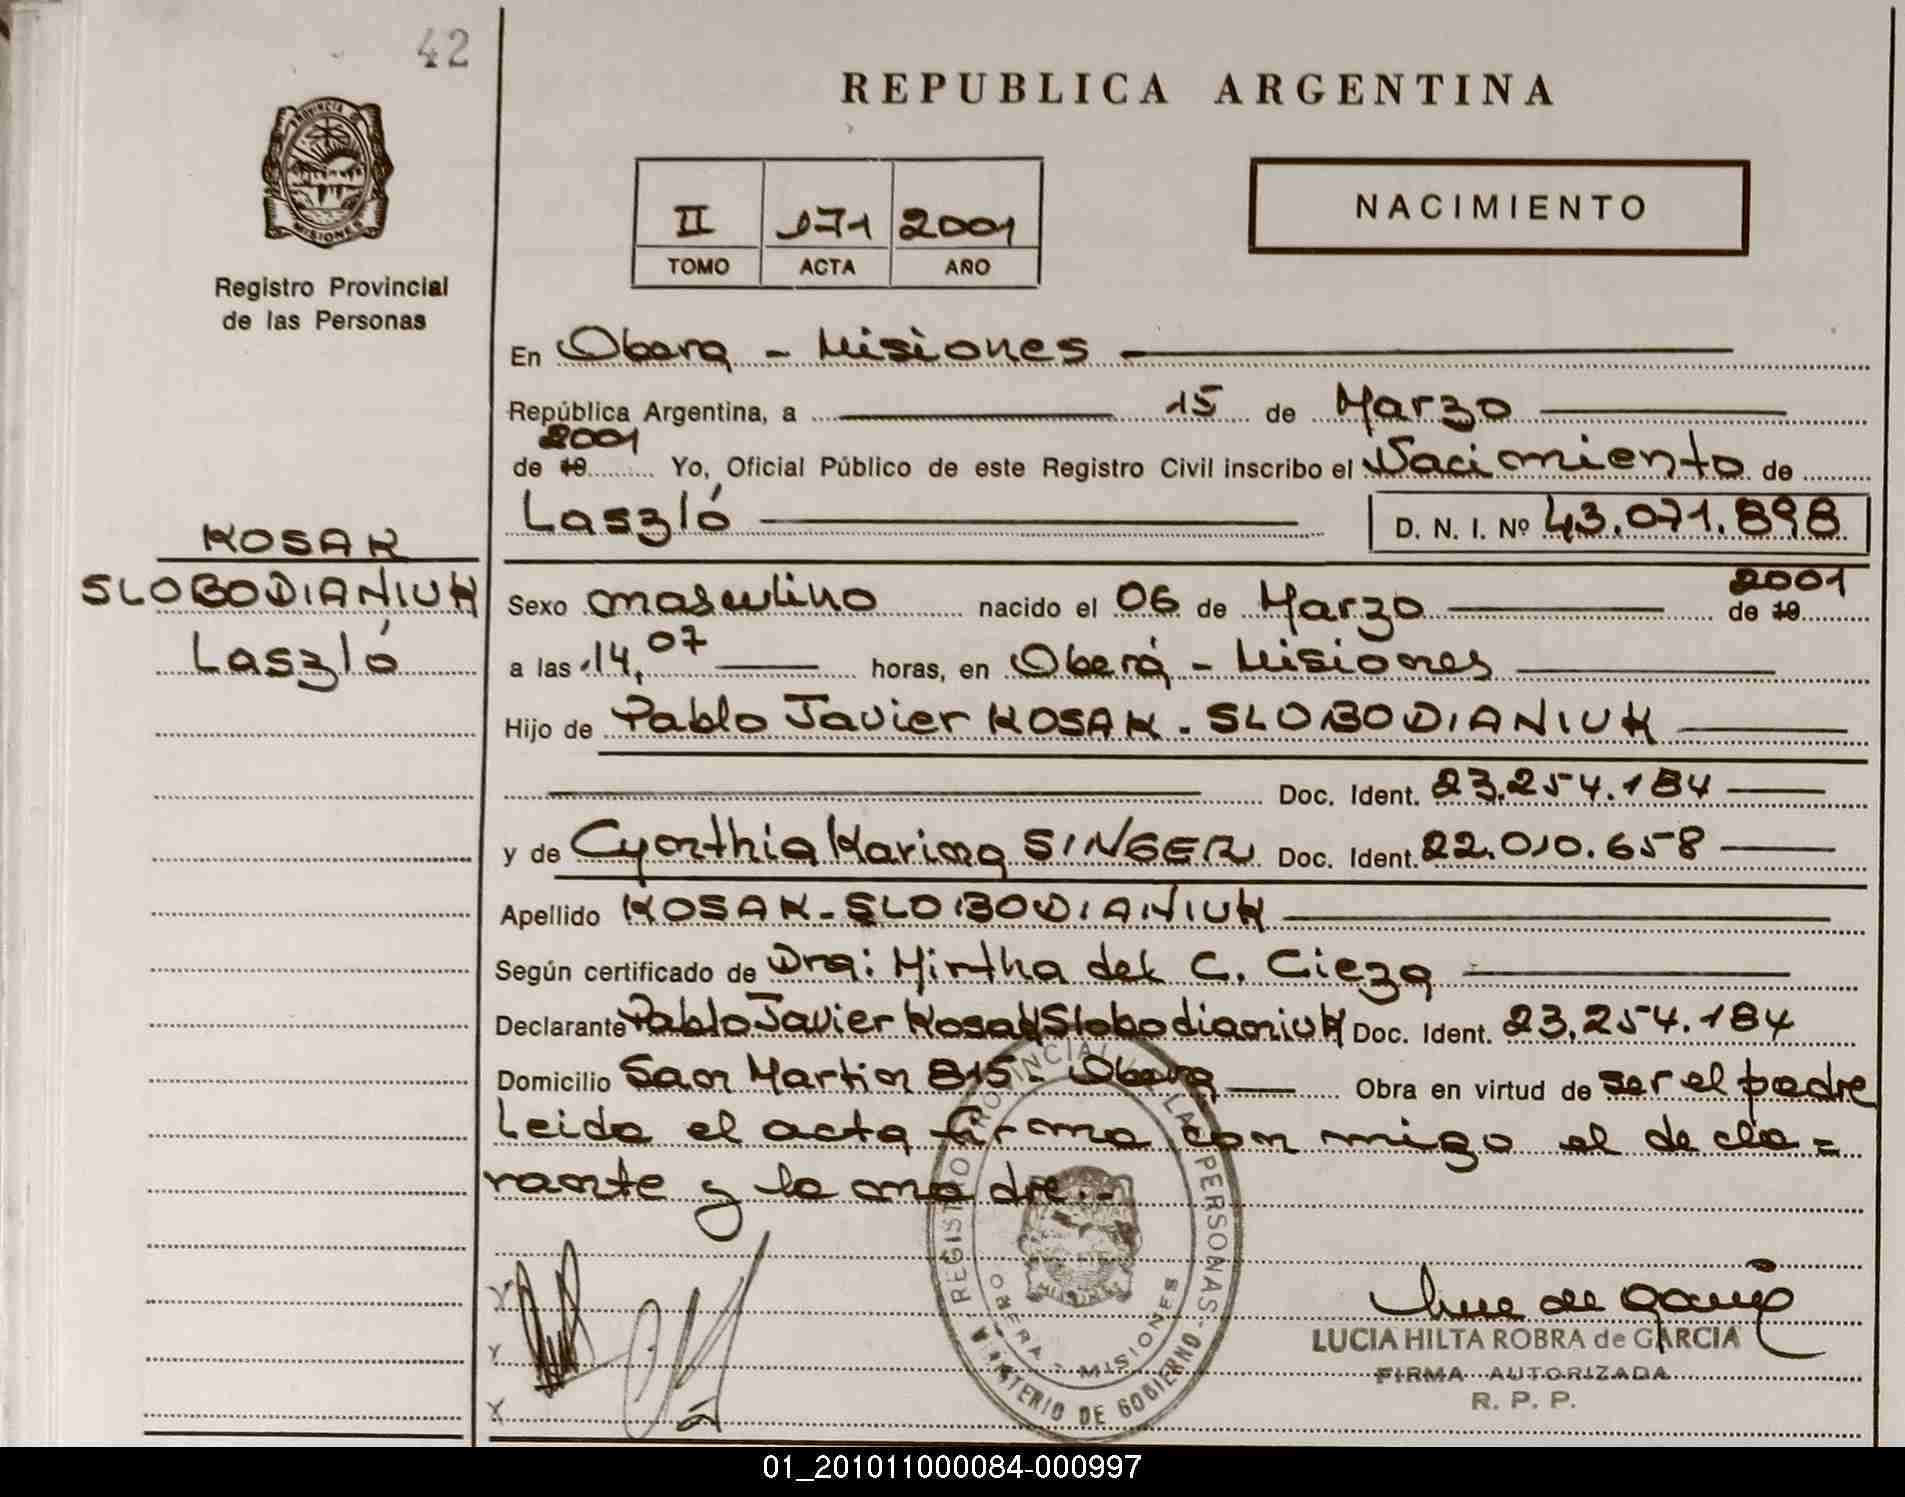 42
REPUBLICA ARGENTINA
PROVINCIA DE
MISIONES
Registro Provincial
de las Personas
II 171 2001
TOMO ACTA AÑO
NACIMIENTO
En Obera - Misiones
República Argentina, a 15 de Marzo
2001
de 19 Yo, Oficial Público de este Registro Civil inscribo el Nacimiento de
Laszló D. N. I. Nº 43.071.898
KOSAK
SLOBODIANIUK
Laszló
Sexo masculino nacido el 06 de Marzo de 19 2001
a las 14,07 horas, en Oberá - Misiones
Hijo de Pablo Javier KOSAK - SLOBODIANIUK
Doc. Ident. 23.254.184
y de Cynthia Karina SINGER Doc. Ident. 22.010.658
Apellido KOSAK-SLOBODIANIUK
Según certificado de Dra: Mirtha del C. Cieza
Declarante Pablo Javier Kosak Slobodianiuk Doc. Ident. 23.254.184
Domicilio San Martin 815 - Obera Obra en virtud de ser el padre
Leida el acta firma con migo el decla=
rante y la madre.-
REGISTRO PROVINCIAL LAS PERSONAS -
OBERA - MISIONES
MINISTERIO DE GOBIERNO -
LUCIA HILTA ROBRA de GARCIA
FIRMA AUTORIZADA
R. P. P.
01_201011000084-000997